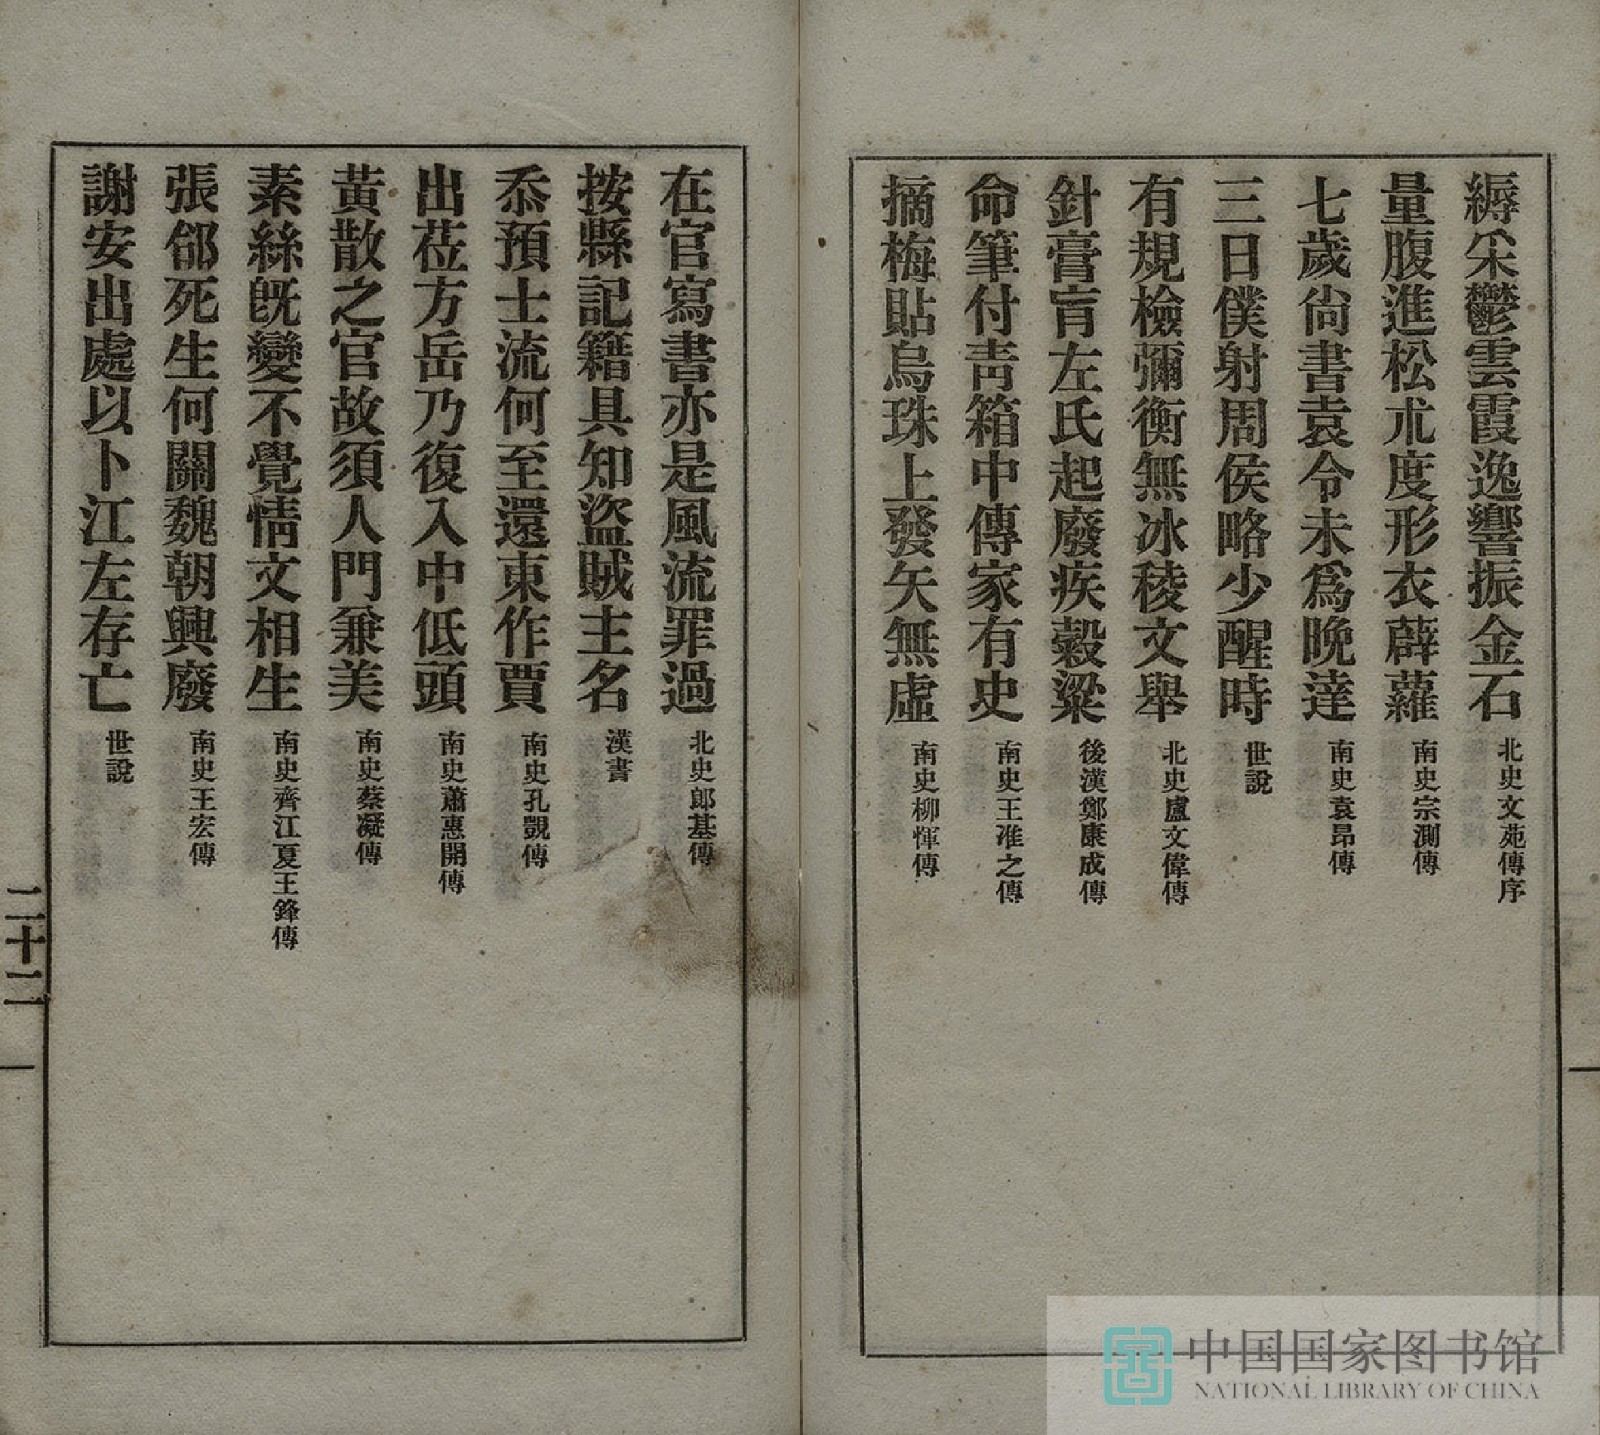 縟采鬱雲霞逸響振金石 北史文苑傳序
量腹進松朮度形衣薜蘿 南史宗測傳
七歲尙書袁令未爲晩達 南史袁昂傳
三日僕射周侯略少醒時 世說
有規檢彌衡無冰稜文舉 北史盧文偉傳
針膏肓左氏起廢疾穀梁 後漢鄭康成傳
命筆付靑箱中傳家有史 南史王准之傳
摘梅貼烏珠上發矢無虛 南史柳惲傳
在官寫書亦是風流罪過 北史郎基傳
按縣記籍具知盜賊主名 漢書
忝預士流何至還東作賈 南史孔覬傳
出莅方岳乃復入中低頭 南史蕭惠開傳
黃散之官故須人門兼美 南史蔡凝傳
素絲旣變不覺情文相生 南史齊江夏王鋒傳
張郃死生何關魏朝興廢 南史王宏傳
謝安出處以卜江左存亡 世說
二十二
中国国家图书馆
NATIONAL LIBRARY OF CHINA